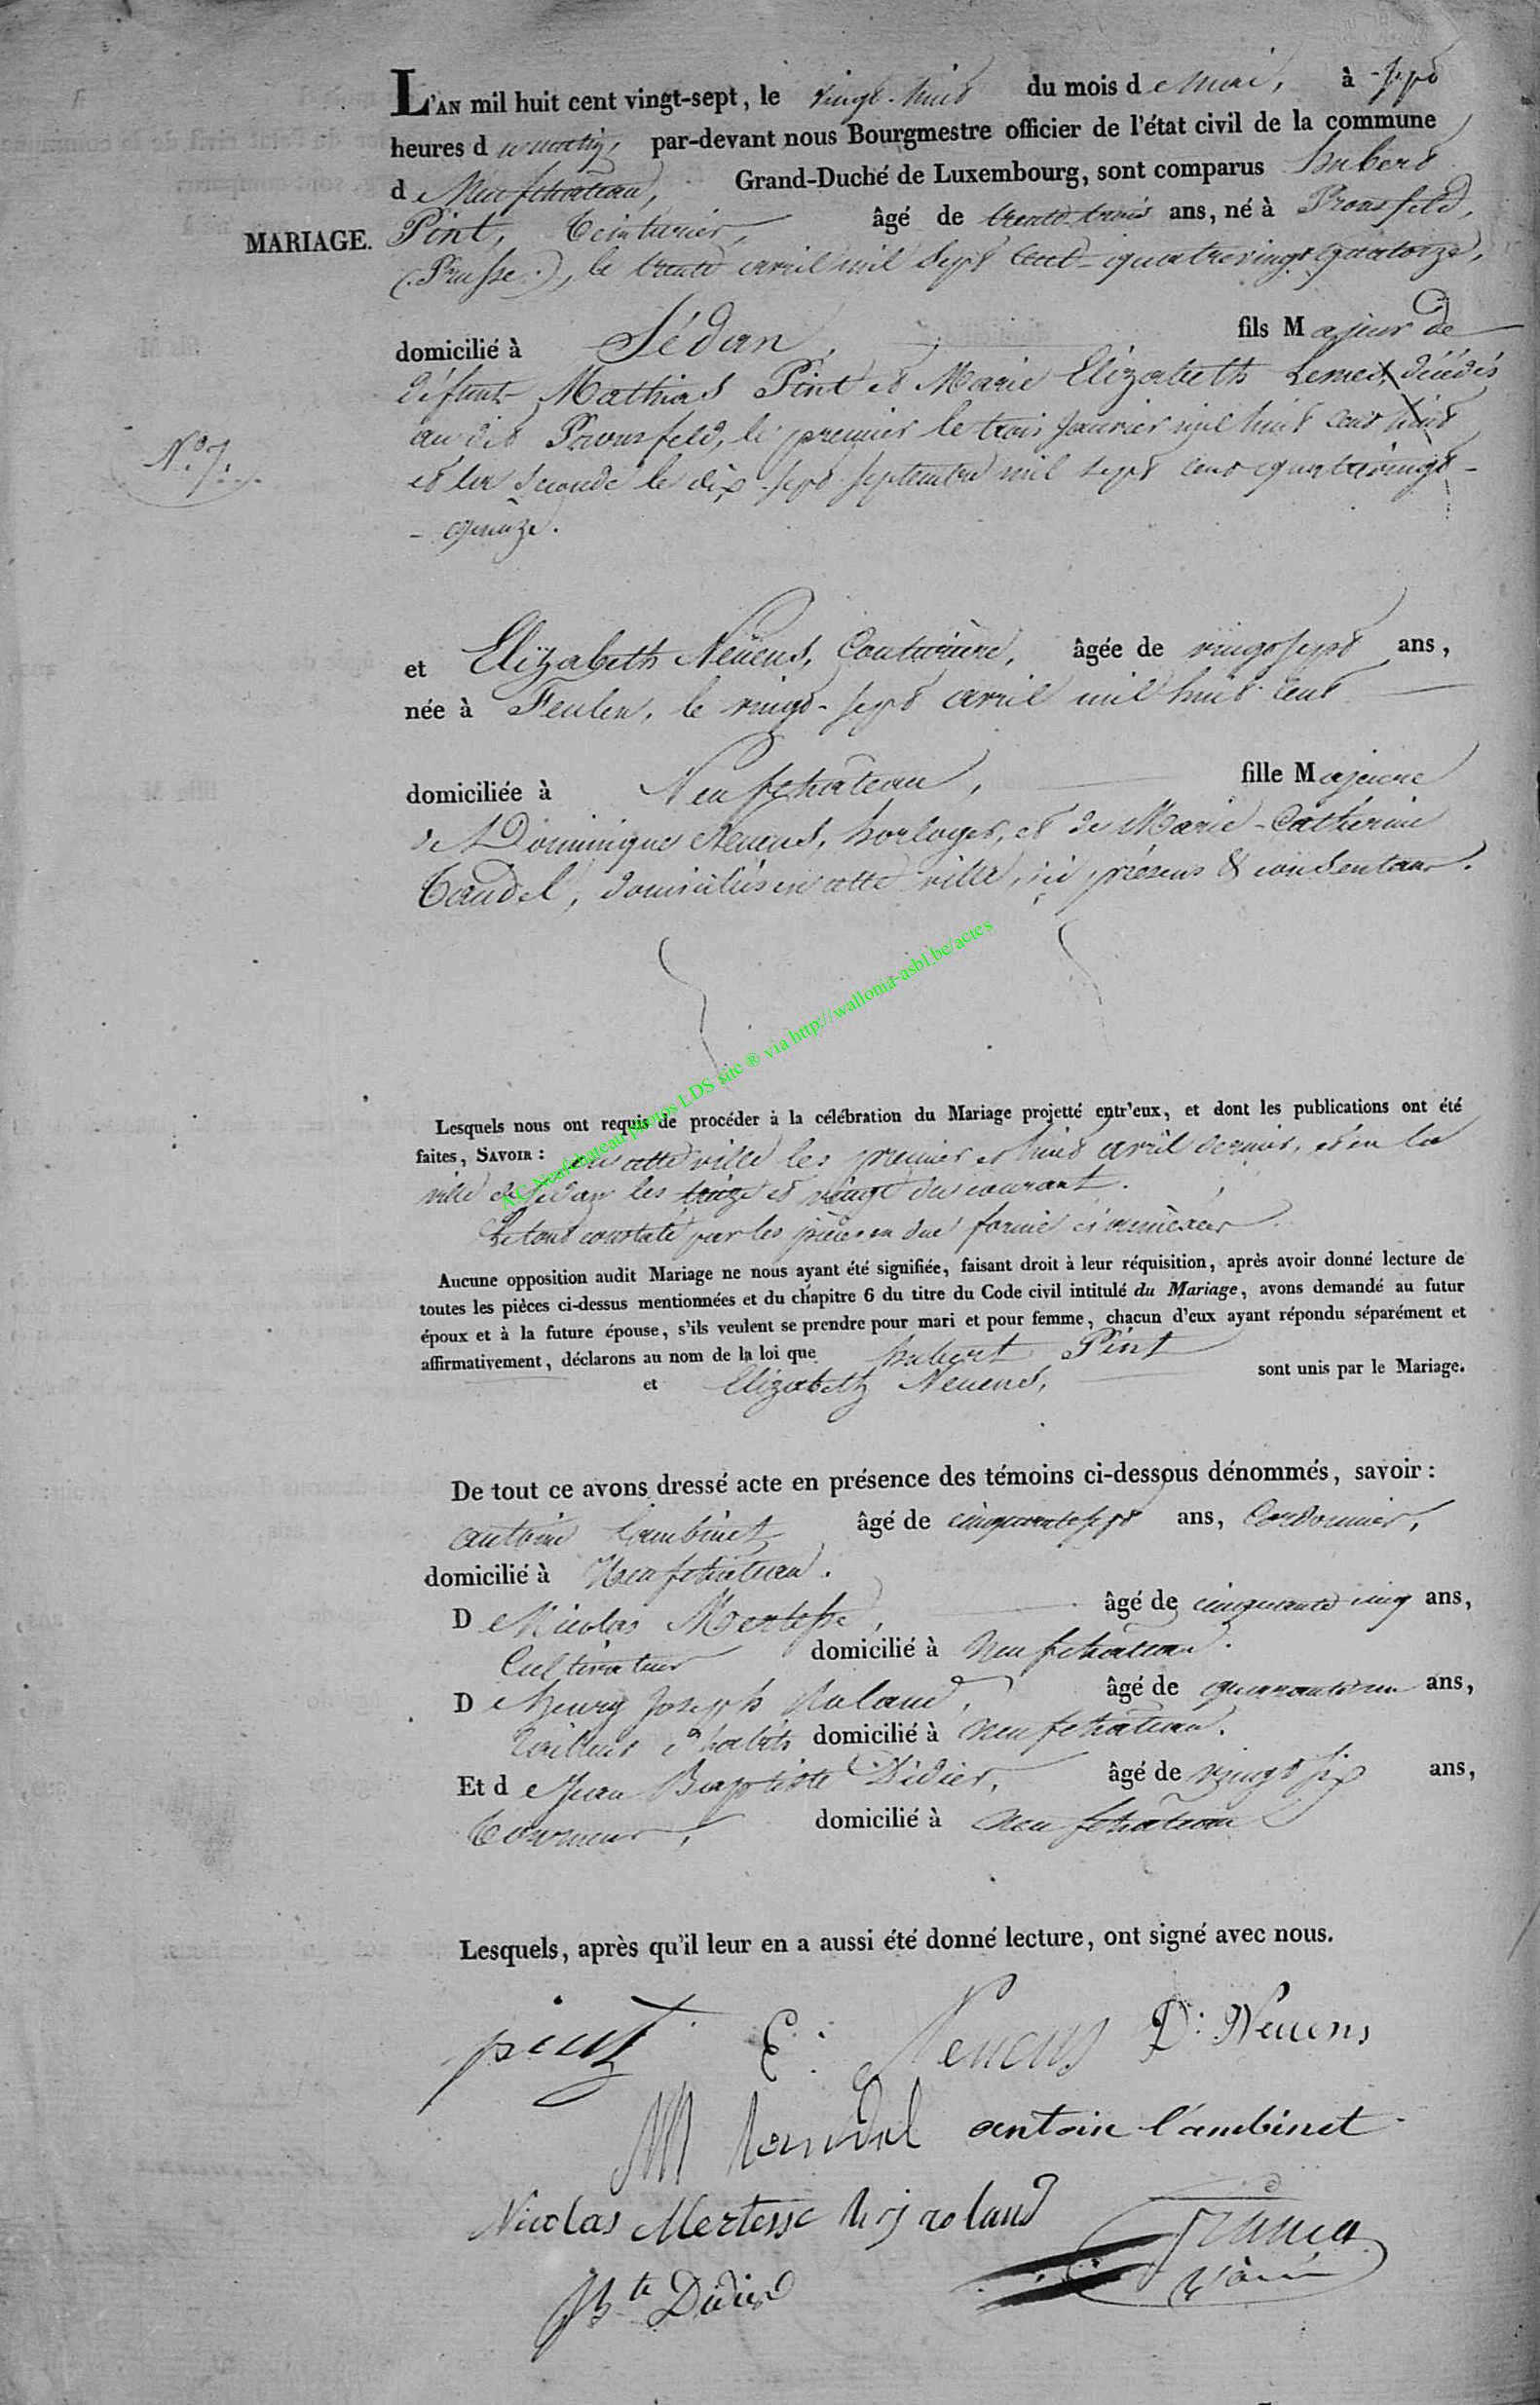 L'AN mil huit cent vingt-sept, le vingt-huit du mois de Mai, à sept
heures du matin, par-devant nous Bourgmestre officier de l'état civil de la commune
de Neufchâteau, Grand-Duché de Luxembourg, sont comparus hubert
MARIAGE. Pint, teinturier, âgé de trente trois ans, né à Pronsfeld,
(Prusse), le trente avril mil sept cent quatrevingt quatorze,
domicilié à Sédan, fils Majeur de
défunts Mathias Pint et Marie Elizabeth décédés
N.° 7. audit Pronsfeld, le premier le trois janvier mil huit cent huit
et la seconde le dix-sept septembre mil sept cent quatrevingt-
- quinze.
et Elizabeth Neuens, Couturière, âgée de vingt sept ans,
née à Feulen, le vingt-sept avril mil huit cent
domiciliée à Neufchâteau, fille Majeure
de Dominique Neuens, horloger, et de Marie-Catherine
Taudel, domiciliés en cette ville, ici présens & consentans.
A C Neufchateau photos LDS site ® via http://wallonia-asbl.be/actes
Lesquels nous ont requis de procéder à la célébration du Mariage projetté entr'eux, et dont les publications ont été
faites, SAVOIR : en cette ville les premier et huit avril dernier, et en la
ville de Sedan les treize et vingt du courant.
Le tout constaté par les pièces en due forme ci annèxées
Aucune opposition audit Mariage ne nous ayant été signifiée, faisant droit à leur réquisition, après avoir donné lecture de
toutes les pièces ci-dessus mentionnées et du chapitre 6 du titre du Code civil intitulé du Mariage, avons demandé au futur
époux et à la future épouse, s'ils veulent se prendre pour mari et pour femme, chacun d'eux ayant répondu séparément et
affirmativement, déclarons au nom de la loi que hubert Pint
et Elizabeth Neuens, sont unis par le Mariage.
De tout ce avons dressé acte en présence des témoins ci-dessous dénommés, savoir :
antoine Cambinet âgé de cinquante sept ans, Cordonnier,
domicilié à Neufchâteau.
De Nicolas Mertesse, âgé de cinquante cinq ans,
Cultivateur domicilié à Neufchâteau.
De Henry Joseph Roland, âgé de quarante un ans,
tailleur d'habits domicilié à Neufchâteau.
Et de Jean Baptiste Didier, âgé de vingt six ans,
tourneur, domicilié à Neufchâteau
Lesquels, après qu'il leur en a aussi été donné lecture, ont signé avec nous.
pint E. Neuens D. Neuens
M taudel antoin Cambinet
Nicolas Mertesse h j roland
JBte Didier